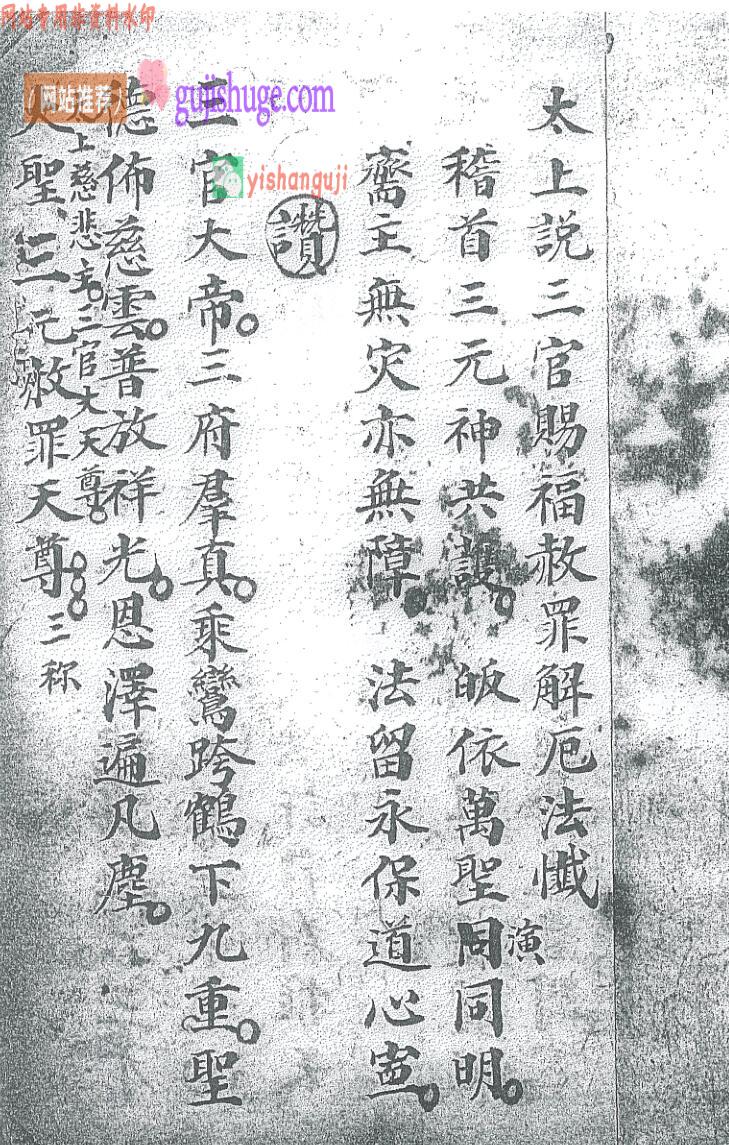 网站专用禁资料水印
网站推荐
gujishuge.com
yishanguji
太上說三官賜福赦罪解厄法懺
稽首三元神共護。皈依萬聖同同明。
演
齋主無灾亦無障 法留永保道心寧。
讚
三官大帝。三府羣真。乘鸞跨鶴下九重。聖
德佈慈雲。普放祥光。恩澤遍凡塵。
上慈悲主。三官大天尊。
聖、三元赦罪天尊。三称